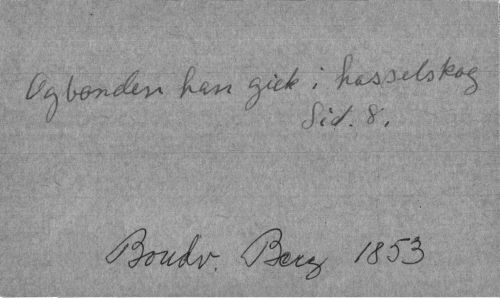 Og bonden han giek i hasselskog
Sid. 8.
Boudv. Berg 1853